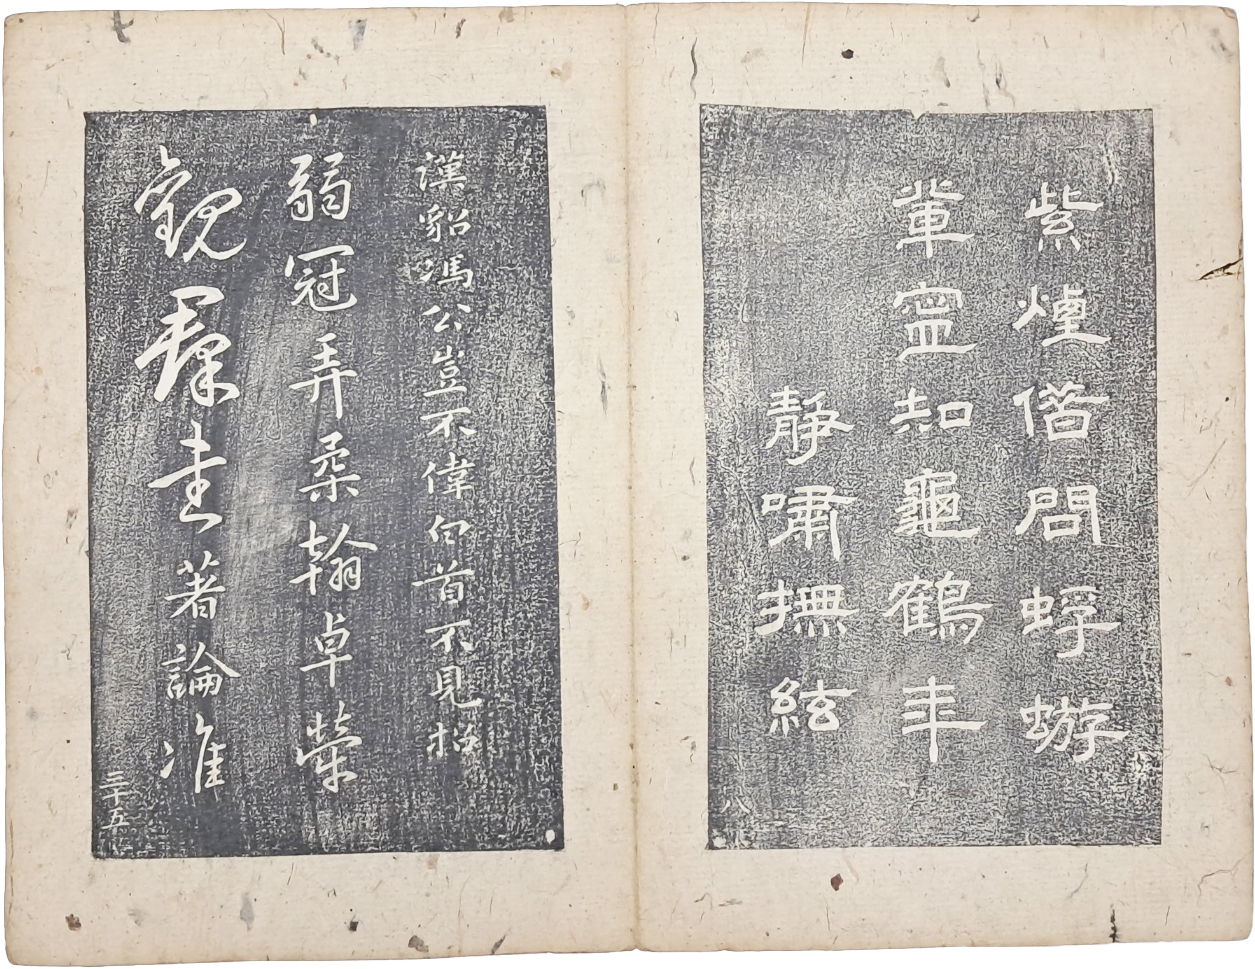 紫煙借問蜉蝣
輩寧知龜鶴年
靜嘯撫絃
八
漢貂馮公豈不偉白首不見招
弱冠弄柔翰卓犖
觀羣書著論准
三十五